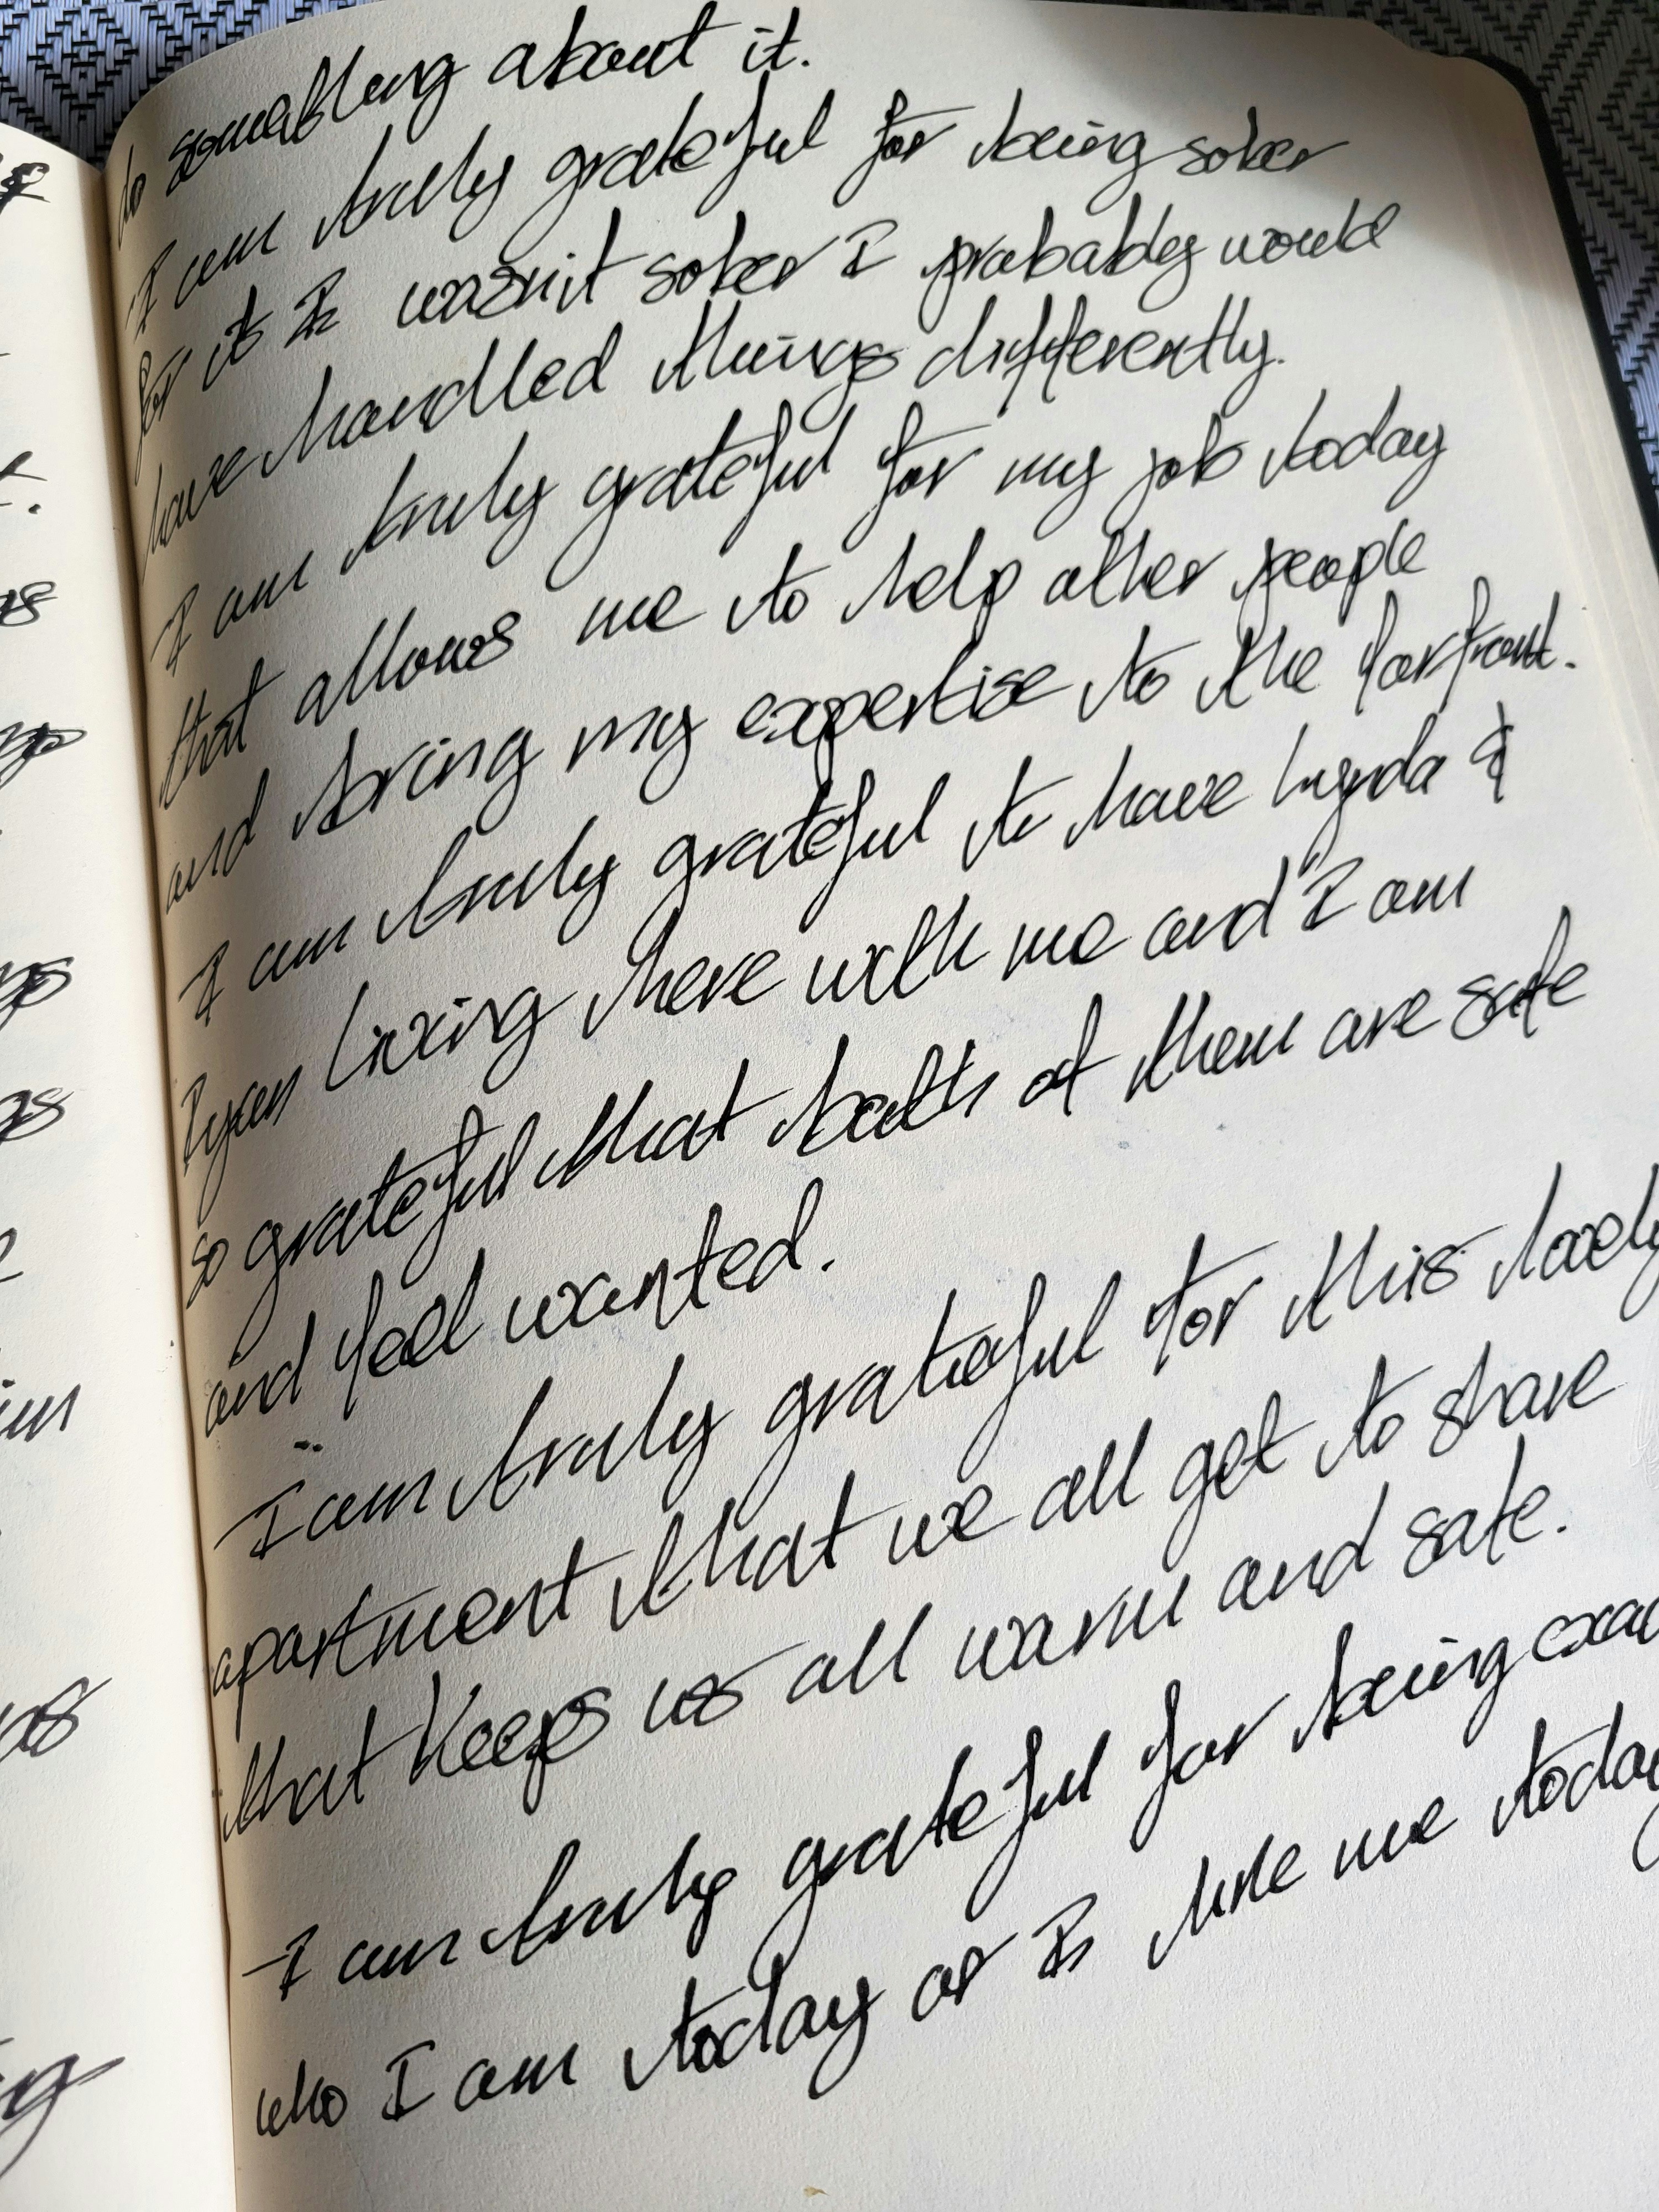 do something about it.
I am truly grateful for being sober
for if I wasn't sober I probably would
have handled things differently.
I am truly grateful for my job today
that allows me to help other people
and bring my expertise to the forfront.
I am truly grateful to have Lynda &
living here with me and I am
so grateful that both of them are safe
and feel wanted.
I am truly grateful for this lovely
apartment that we all get to share
that keeps us all warm and safe.
I am truly grateful for being
who I am today as I like me today